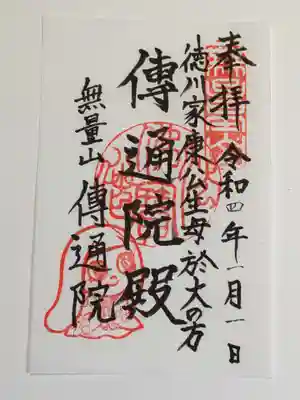 奉拝 令和四年一月一日
徳川家康公生母於大の方
傳通院殿
無量山 傳通院